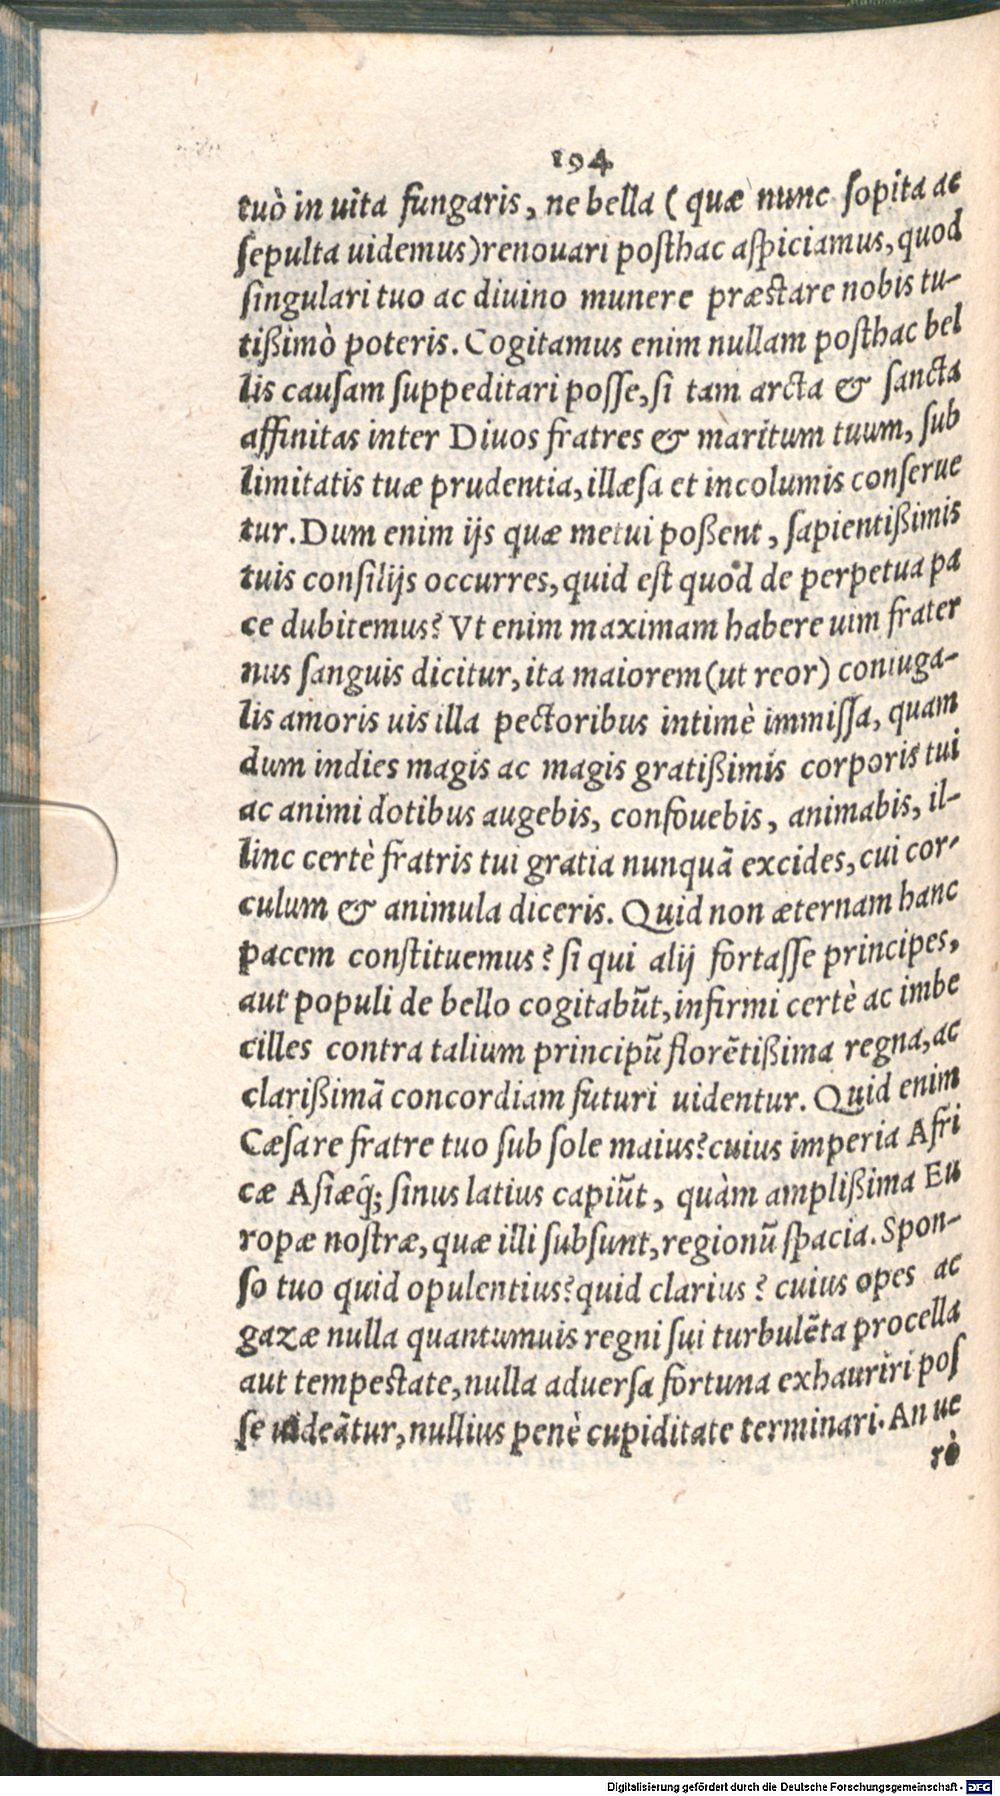 194
tuò in uita fungaris, ne bella ( quæ nunc sopita ac
sepulta uidemus)renouari posthac aspiciamus, quod
singulari tuo ac diuino munere præstare nobis tu-
tißimò poteris. Cogitamus enim nullam posthac bel
lis causam suppeditari posse, si tam arcta & sancta
affinitas inter Diuos fratres & maritum tuum, sub
limitatis tuæ prudentia, illæsa et incolumis conserue
tur. Dum enim ijs quæ metui poßent, sapientißimis
tuis consilijs occurres, quid est quod de perpetua pa
ce dubitemus? Vt enim maximam habere uim frater
nus sanguis dicitur, ita maiorem (ut reor) coniuga-
lis amoris uis illa pectoribus intimè immissa, quam
dum indies magis ac magis gratißimis corporis tui
ac animi dotibus augebis, confouebis, animabis, il-
linc certè fratris tui gratia nunquã excides, cui cor-
culum & animula diceris. Quid non æternam hanc
pacem constituemus? si qui alij fortasse principes,
aut populi de bello cogitabũt, infirmi certè ac imbe
cilles contra talium principũ florẽtißima regna, ac
clarißimã concordiam futuri uidentur. Quid enim
Cæsare fratre tuo sub sole maius? cuius imperia Afri
cæ Asiæq̃; sinus latius capiũt, quàm amplißima Eu
ropæ nostræ, quæ illi subsunt, regionũ spacia. Spon-
so tuo quid opulentius? quid clarius? cuius opes ac
gazæ nulla quantumuis regni sui turbulẽta procella
aut tempestate, nulla aduersa fortuna exhauriri pos
se uideãtur, nullius penè cupiditate terminari. An ue
rò
Digitalisierung gefördert durch die Deutsche Forschungsgemeinschaft - DFG